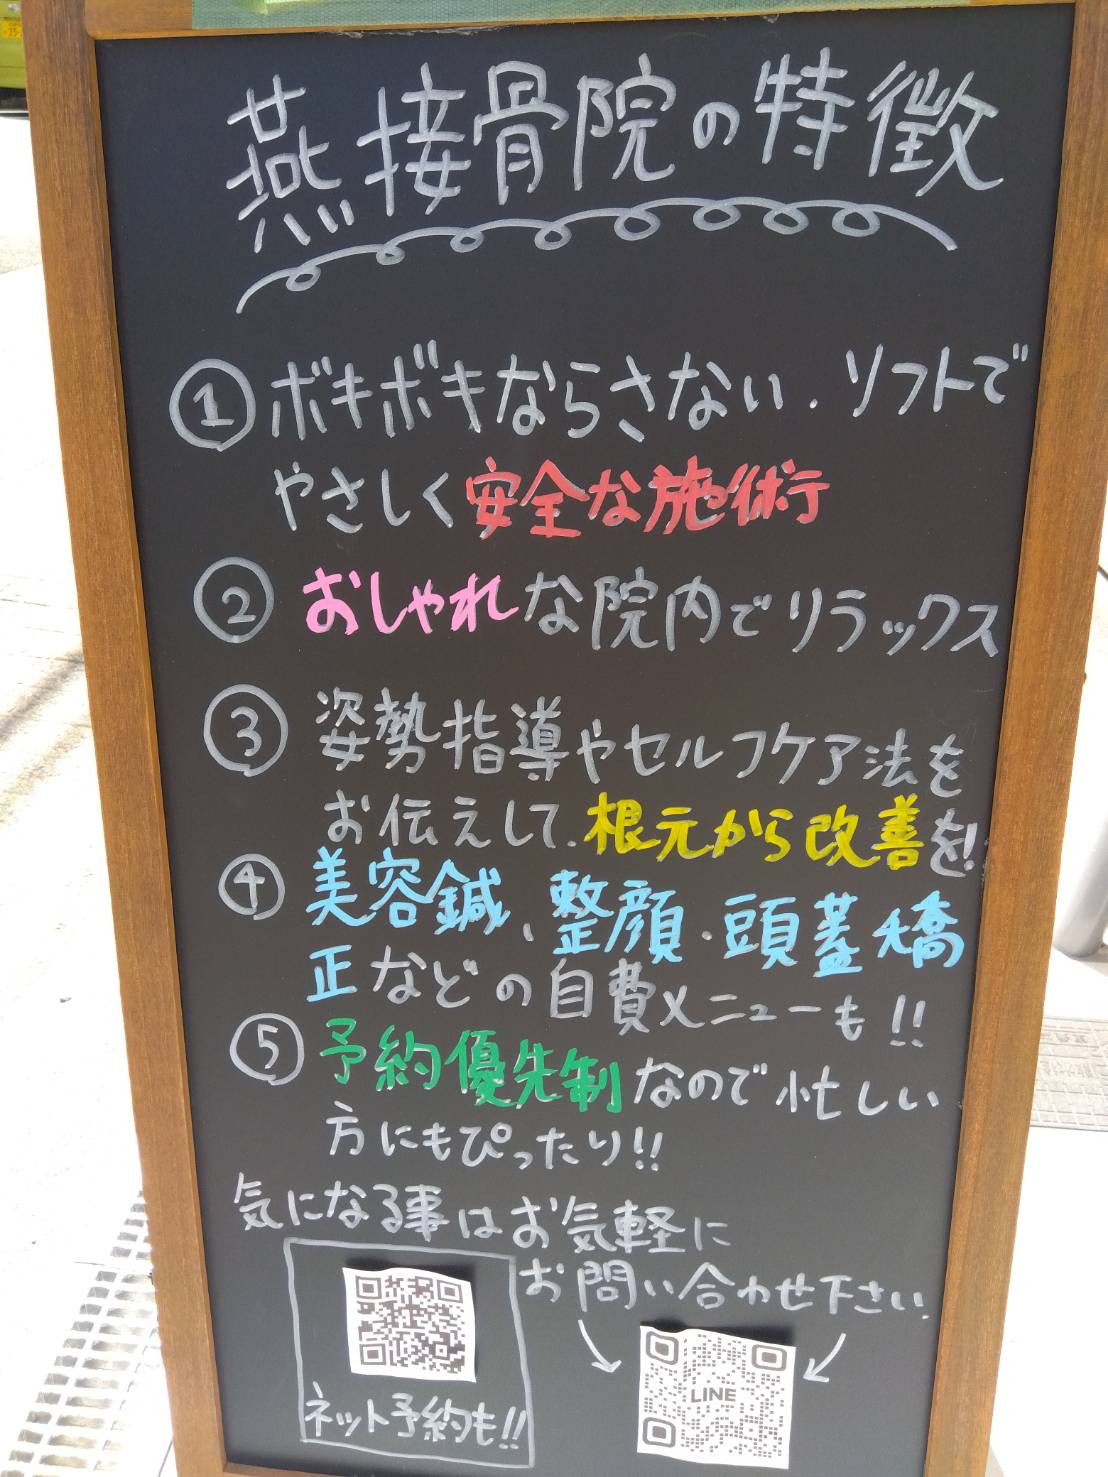 燕接骨院の特徴
① ボキボキならさない.ソフトで
やさしく安全な施術
② おしゃれな院内でリラックス
③ 姿勢指導やセルフケア法を
お伝えして.根元から改善を!
④ 美容鍼、整顔・頭蓋矯
正などの自費メニューも!!
⑤ 予約優先制なので忙しい
方にもぴったり!!
気になる事はお気軽に
お問い合わせ下さい
ネット予約も!!
LINE